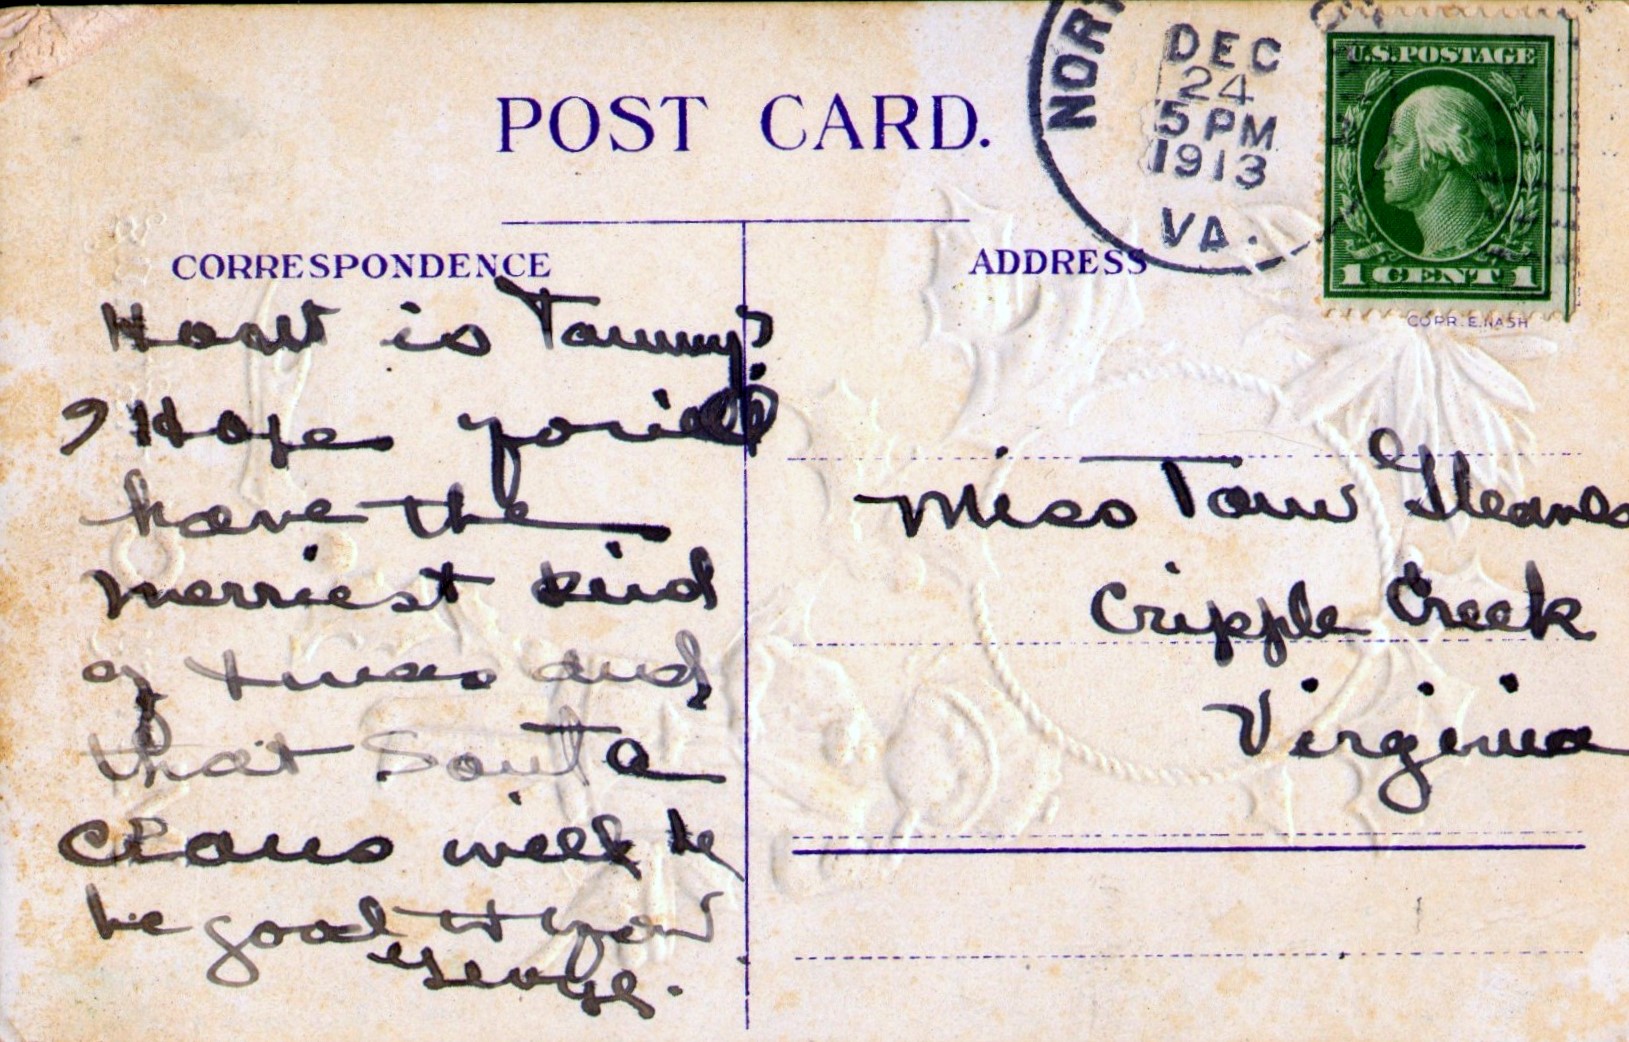 POST CARD.
NOR
DEC
24
5 PM
1913
VA.
U.S. POSTAGE
1 CENT 1
COPR. E. NASH
CORRESPONDENCE
How is Tommy?
I Hope you'll
have the
merriest kind
of times and
that Santa
Claus will be
be good to you
George.
ADDRESS
Miss Tom
Cripple Creek
Virginia